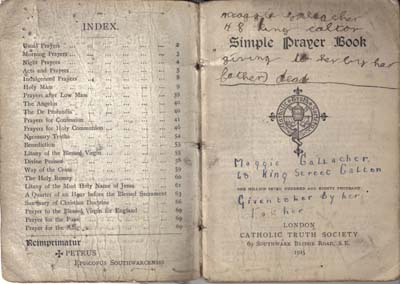 INDEX.
Usual Prayers ... 2
Morning Prayers ... 3
Night Prayers ... 4
Acts and Prayers ... 5
Indulgenced Prayers ... 8
Holy Mass ... 9
Prayers after Low Mass ... 39
The Angelus ... 40
The De Profundis ... 40
Prayers for Confession ... 41
Prayers for Holy Communion ... 46
Necessary Truths ... 54
Benediction ... 53
Litany of the Blessed Virgin ... 55
Divine Praises ... 58
Way of the Cross ... 59
The Holy Rosary ... 60
Litany of the Most Holy Name of Jesus ... 61
A Quarter of an Hour before the Blessed Sacrament 63
Summary of Christian Doctrine ... 66
Prayer to the Blessed Virgin for England ... 69
Prayer for the Pope ... 69
Prayer for the
Reimprimatur
✠ PETRUS
Episcopus Southwarcensis
Maggie Gallacher
48 King Calton
Simple Prayer Book
giving to her by her
father dead
Maggie Gallacher.
48 King Street Calton
ONE MILLION
Given to her by her
father
LONDON
CATHOLIC TRUTH SOCIETY
69 Southwark Bridge Road, S.E.
1915